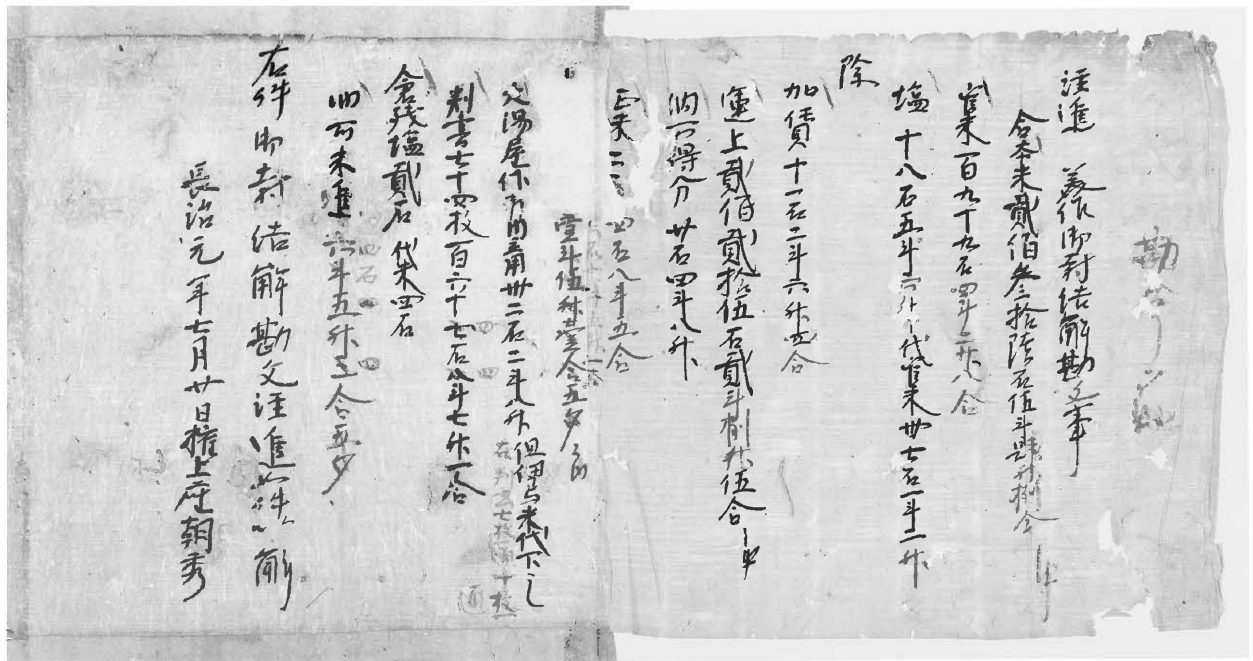 勘合了
注進 美作御封結解勘文事
合本米貳佰叁拾陸石伍斗肆升捌合
官米百九十九石四斗二升八合
塩十八石五斗六升 代官米卅七石一斗二升
除
加賃十一石二斗六升四合
運上貳佰貳拾伍石貳斗捌升伍合
納所得分廿石四斗八升
正米二百四石八斗五合
壹斗伍升壹合五夕
又湯屋作 卅二石二斗八升 但伊与米代下之
判書七十四枚百六十七石八斗七升一合
倉残塩貳石 代米四石
所未進六斗五升三合五夕
右件御封結解勘文注進如件以解
長治元年七月廿日権上座朝秀